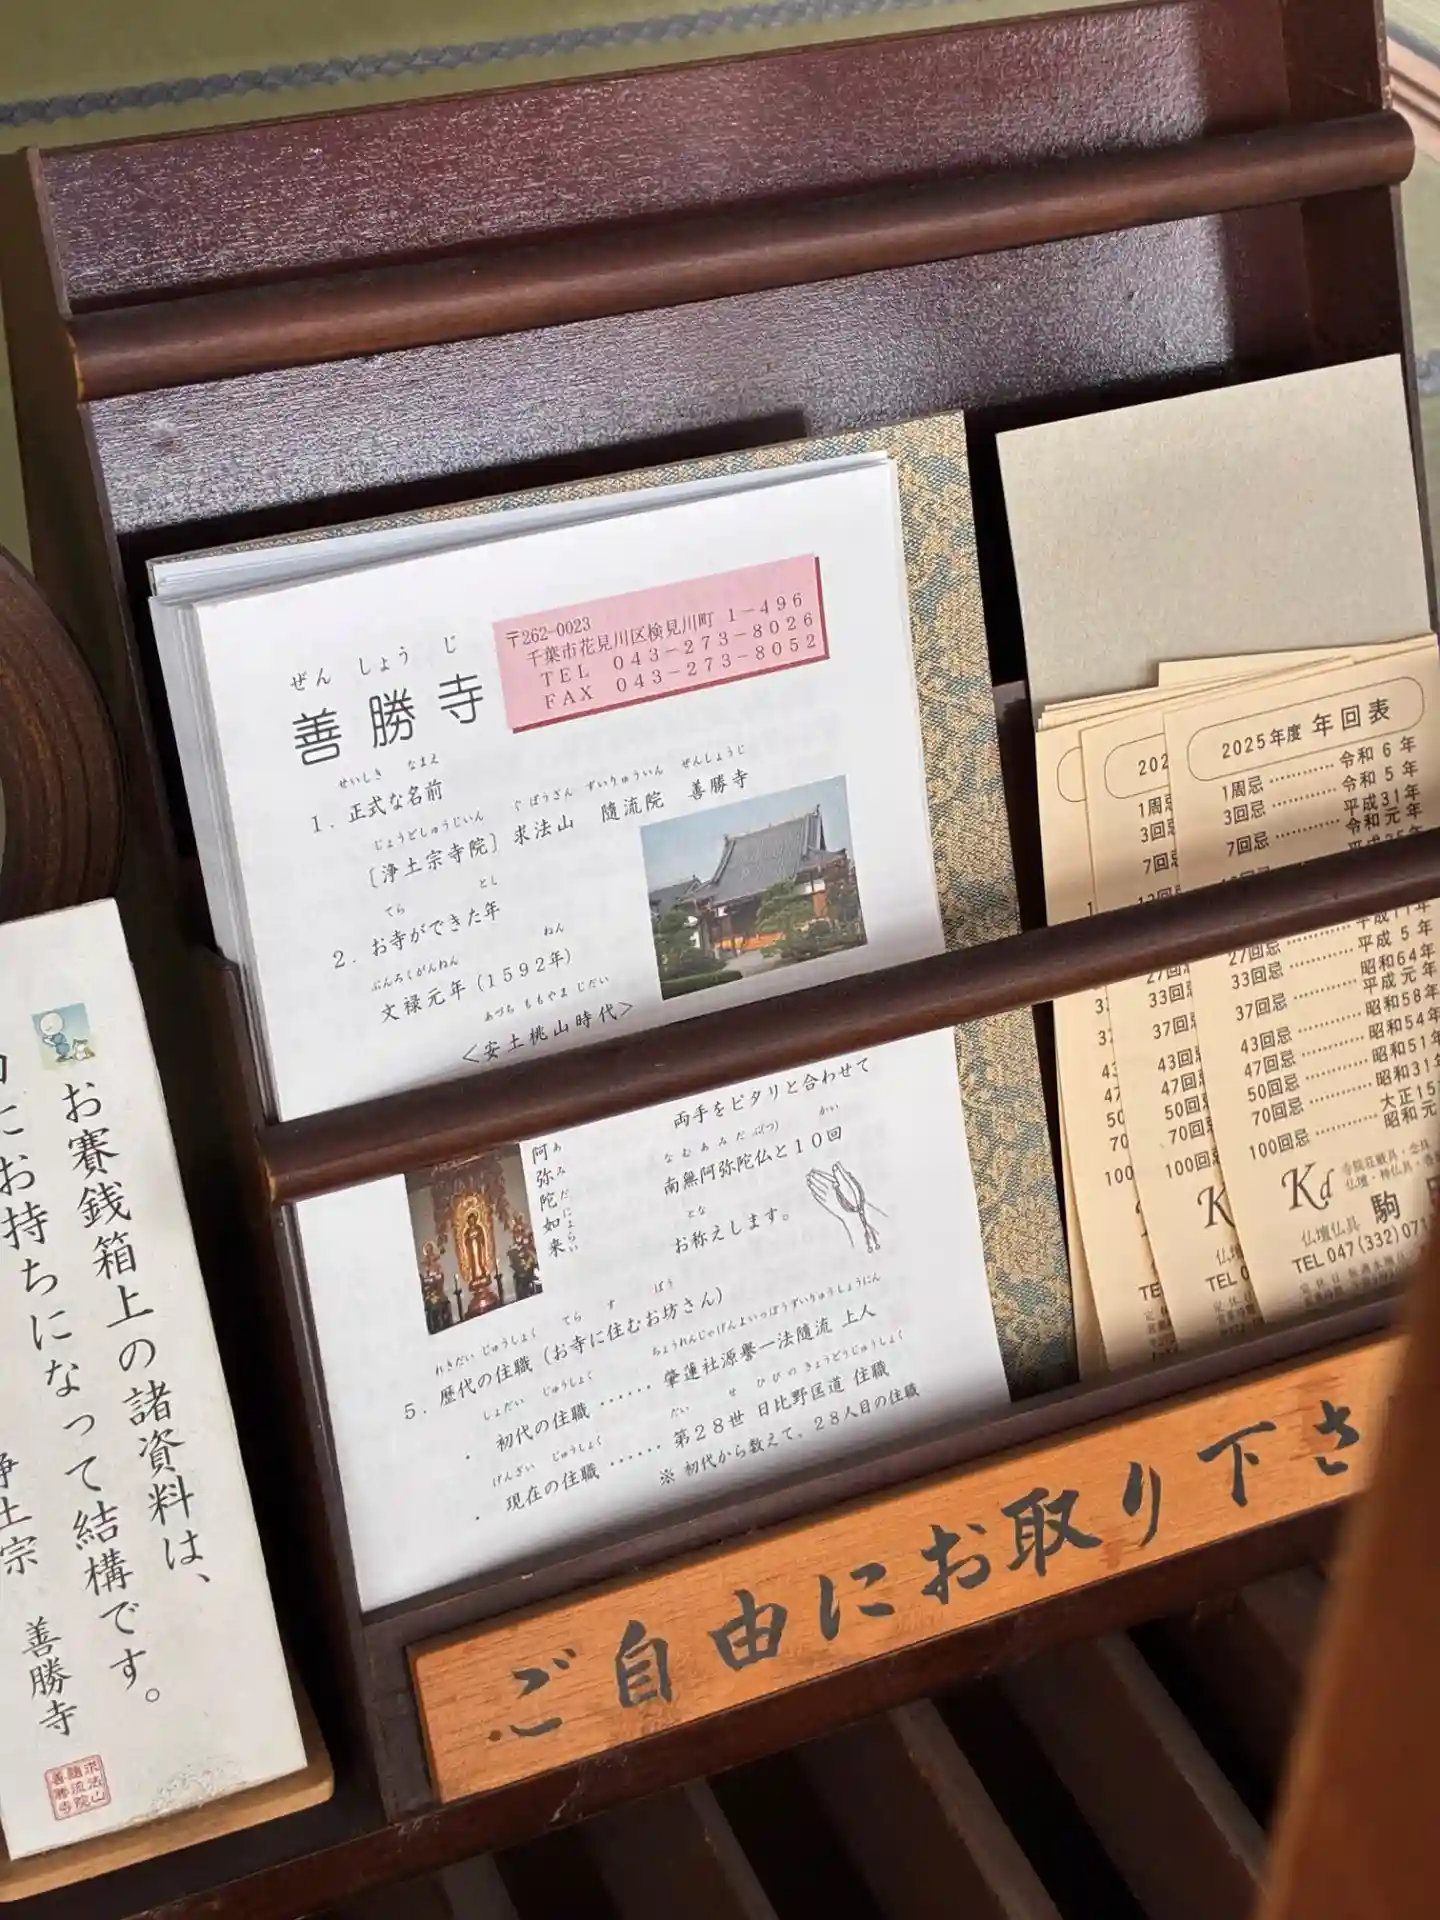 ぜん しょう じ
善勝寺
〒262-0023
千葉市花見川区検見川町 1-496
TEL 043-273-8026
FAX 043-273-8052
せいしき なまえ
1. 正式な名前
じょうどしゅうじいん ぐほうざん ずいりゅういん ぜんしょうじ
[浄土宗寺院] 求法山 随流院 善勝寺
てら とし
2. お寺ができた年
ぶんろくがんねん ねん
文禄元年(1592年)
あづち ももやま じだい
<安土桃山時代>
あみだにょらい
阿弥陀如来
両手をピタリと合わせて
なむあみだぶ(つ) かい
南無阿弥陀仏と10回
とな
お称えします。
れきだい じゅうしょく てら す ぼう
5. 歴代の住職(お寺に住むお坊さん)
しょだい じゅうしょく ちょうれんじゃげんよいっぽうずいりゅうしょうにん
・初代の住職 …… 肇蓮社源誉一法随流 上人
げんざい じゅうしょく だい せ ひびの きょうどうじゅうしょく
・現在の住職 …… 第28世 日比野匡道 住職
※ 初代から数えて、28人目の住職
2025年度 年回表
1周忌 ………… 令和 6 年
3回忌 ………… 令和 5 年
7回忌 ………… 平成31年
令和元年
27回忌 ………… 平成11年
33回忌 ………… 平成 5 年
37回忌 ………… 昭和64年
平成元年
43回忌 ………… 昭和58年
47回忌 ………… 昭和54年
50回忌 ………… 昭和51年
70回忌 ………… 昭和31年
100回忌 ………… 大正15
昭和元
Kd
寺院荘厳具・念具
仏壇・神仏具・香
仏壇仏具 駒
TEL 047(332)071
お賽銭箱上の諸資料は、
にお持ちになって結構です。
浄土宗 善勝寺
求法山
随流院
善勝寺
ご自由にお取り下さ